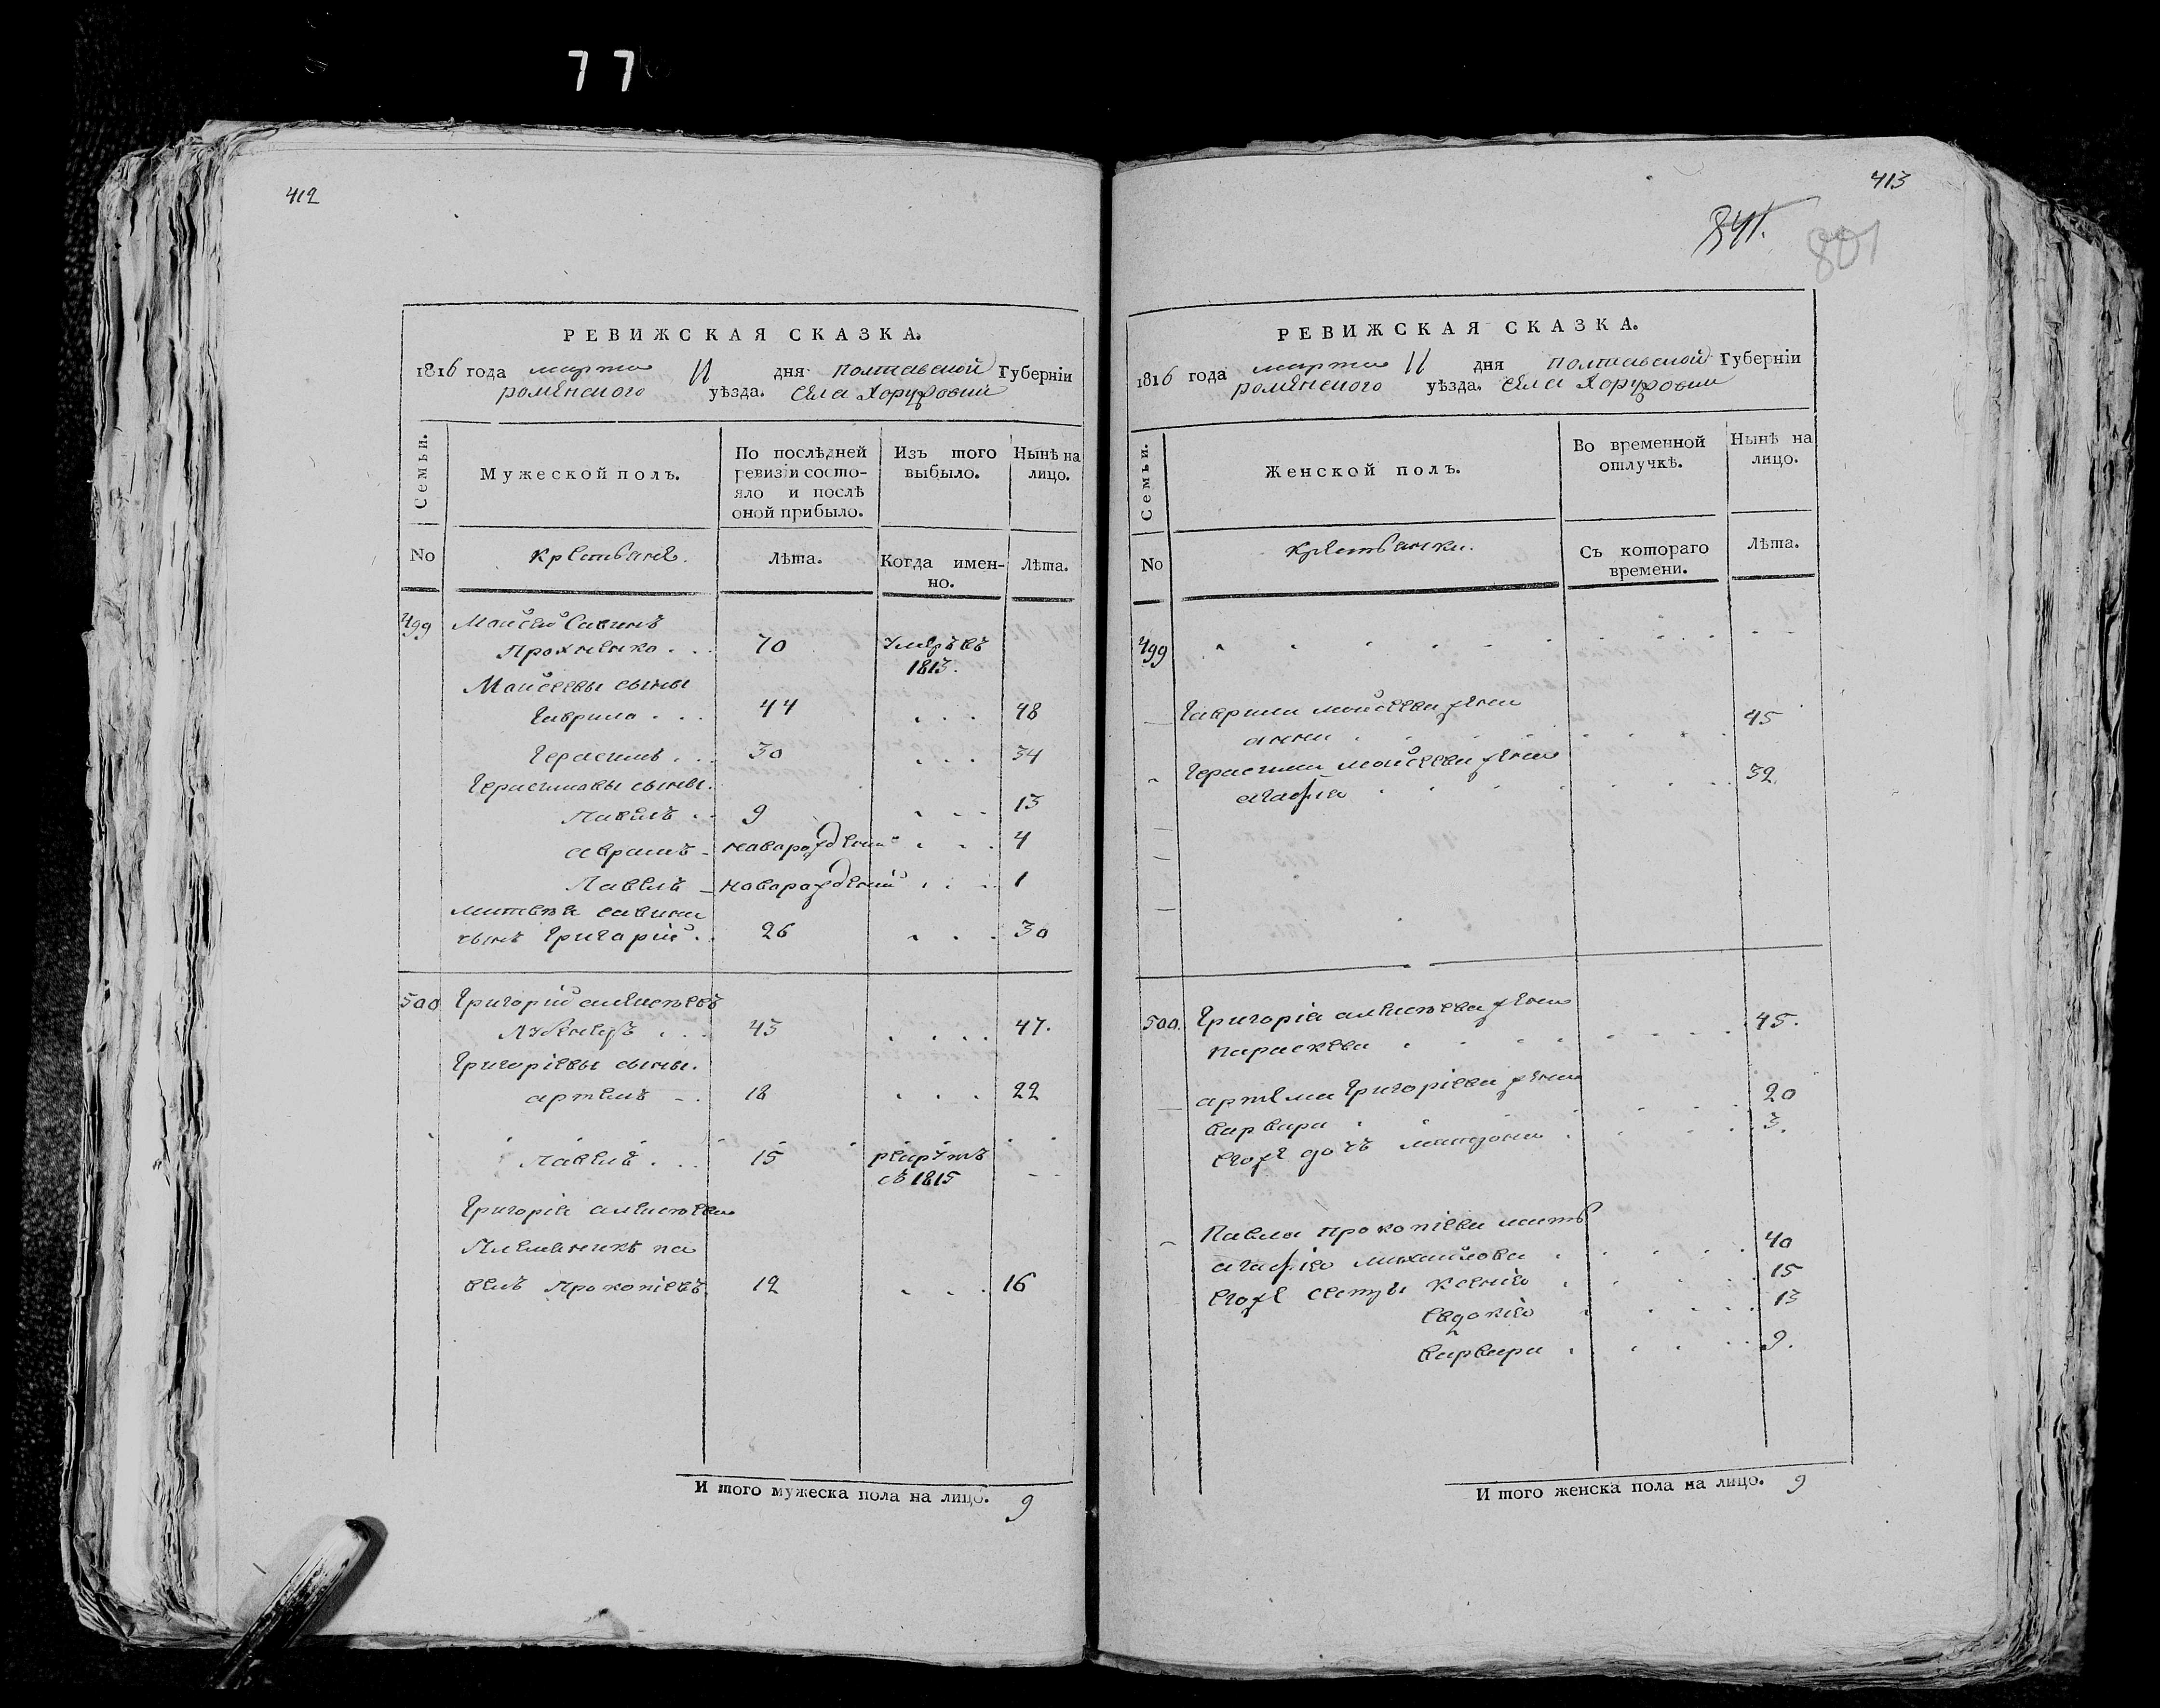 77
412
РЕВИЖСКАЯ СКАЗКА.
1816 года марта 11 дня полтавской Губерніи
роменского уѣзда. села Хоружовки
Семьи.
Мужеской полъ.
По послѣдней ревизіи состояло и послѣ оной прибыло.
Изъ того выбыло.
Нынѣ на лицо.
No
Крестьяне.
Лѣта.
Когда именно.
Лѣта.
499 Мойсей Савинъ
Прохненко . . . 70 умеръ въ
1813.
Мойсеевы сыны
Гаврило . . . 44 . . . 48
Герасимъ . . . 30 . . . 34
Герасимовы сыны.
9 . . . 13
аврамъ - новорожденій . . . 4
Павелъ - новорожденій . . . 1
савина
сынъ Григорій . . 26 . . . 30
500 Григорій алексѣевъ
. . . 43 . . . . 47.
Григоріевы сыны.
артемъ - . 18 . . . 22
Павелъ . . . 15 рекрутъ
съ 1815 - -
Григорія алексѣева
Племянникъ па
велъ Прокопіевъ 12 . . . 16
И того мужеска пола на лицо. 9
413
841.
801
РЕВИЖСКАЯ СКАЗКА.
1816 года марта 11 дня полтавской Губерніи
роменского уѣзда. села Хоружовки
Семьи.
Женской полъ.
Во временной отлучкѣ.
Нынѣ на лицо.
No
крестьянки.
Съ котораго времени.
Лѣта.
499
Гаврила мойсеева жена
анна . . . . 45
Герасима мойсеева жена
агафія . . . . 32
500. Григорія алексѣева жена
параскева . . . . 45.
артема Григоріева жена
варвара . . . . 20
Егоже дочь . . . . 3.
Павла прокопіева мать
агафія михайлова . . . . 40
Егоже сестры ксенія . . . . 15
евдокія . . . . 13
варвара . . . . 9.
И того женска пола на лицо. 9